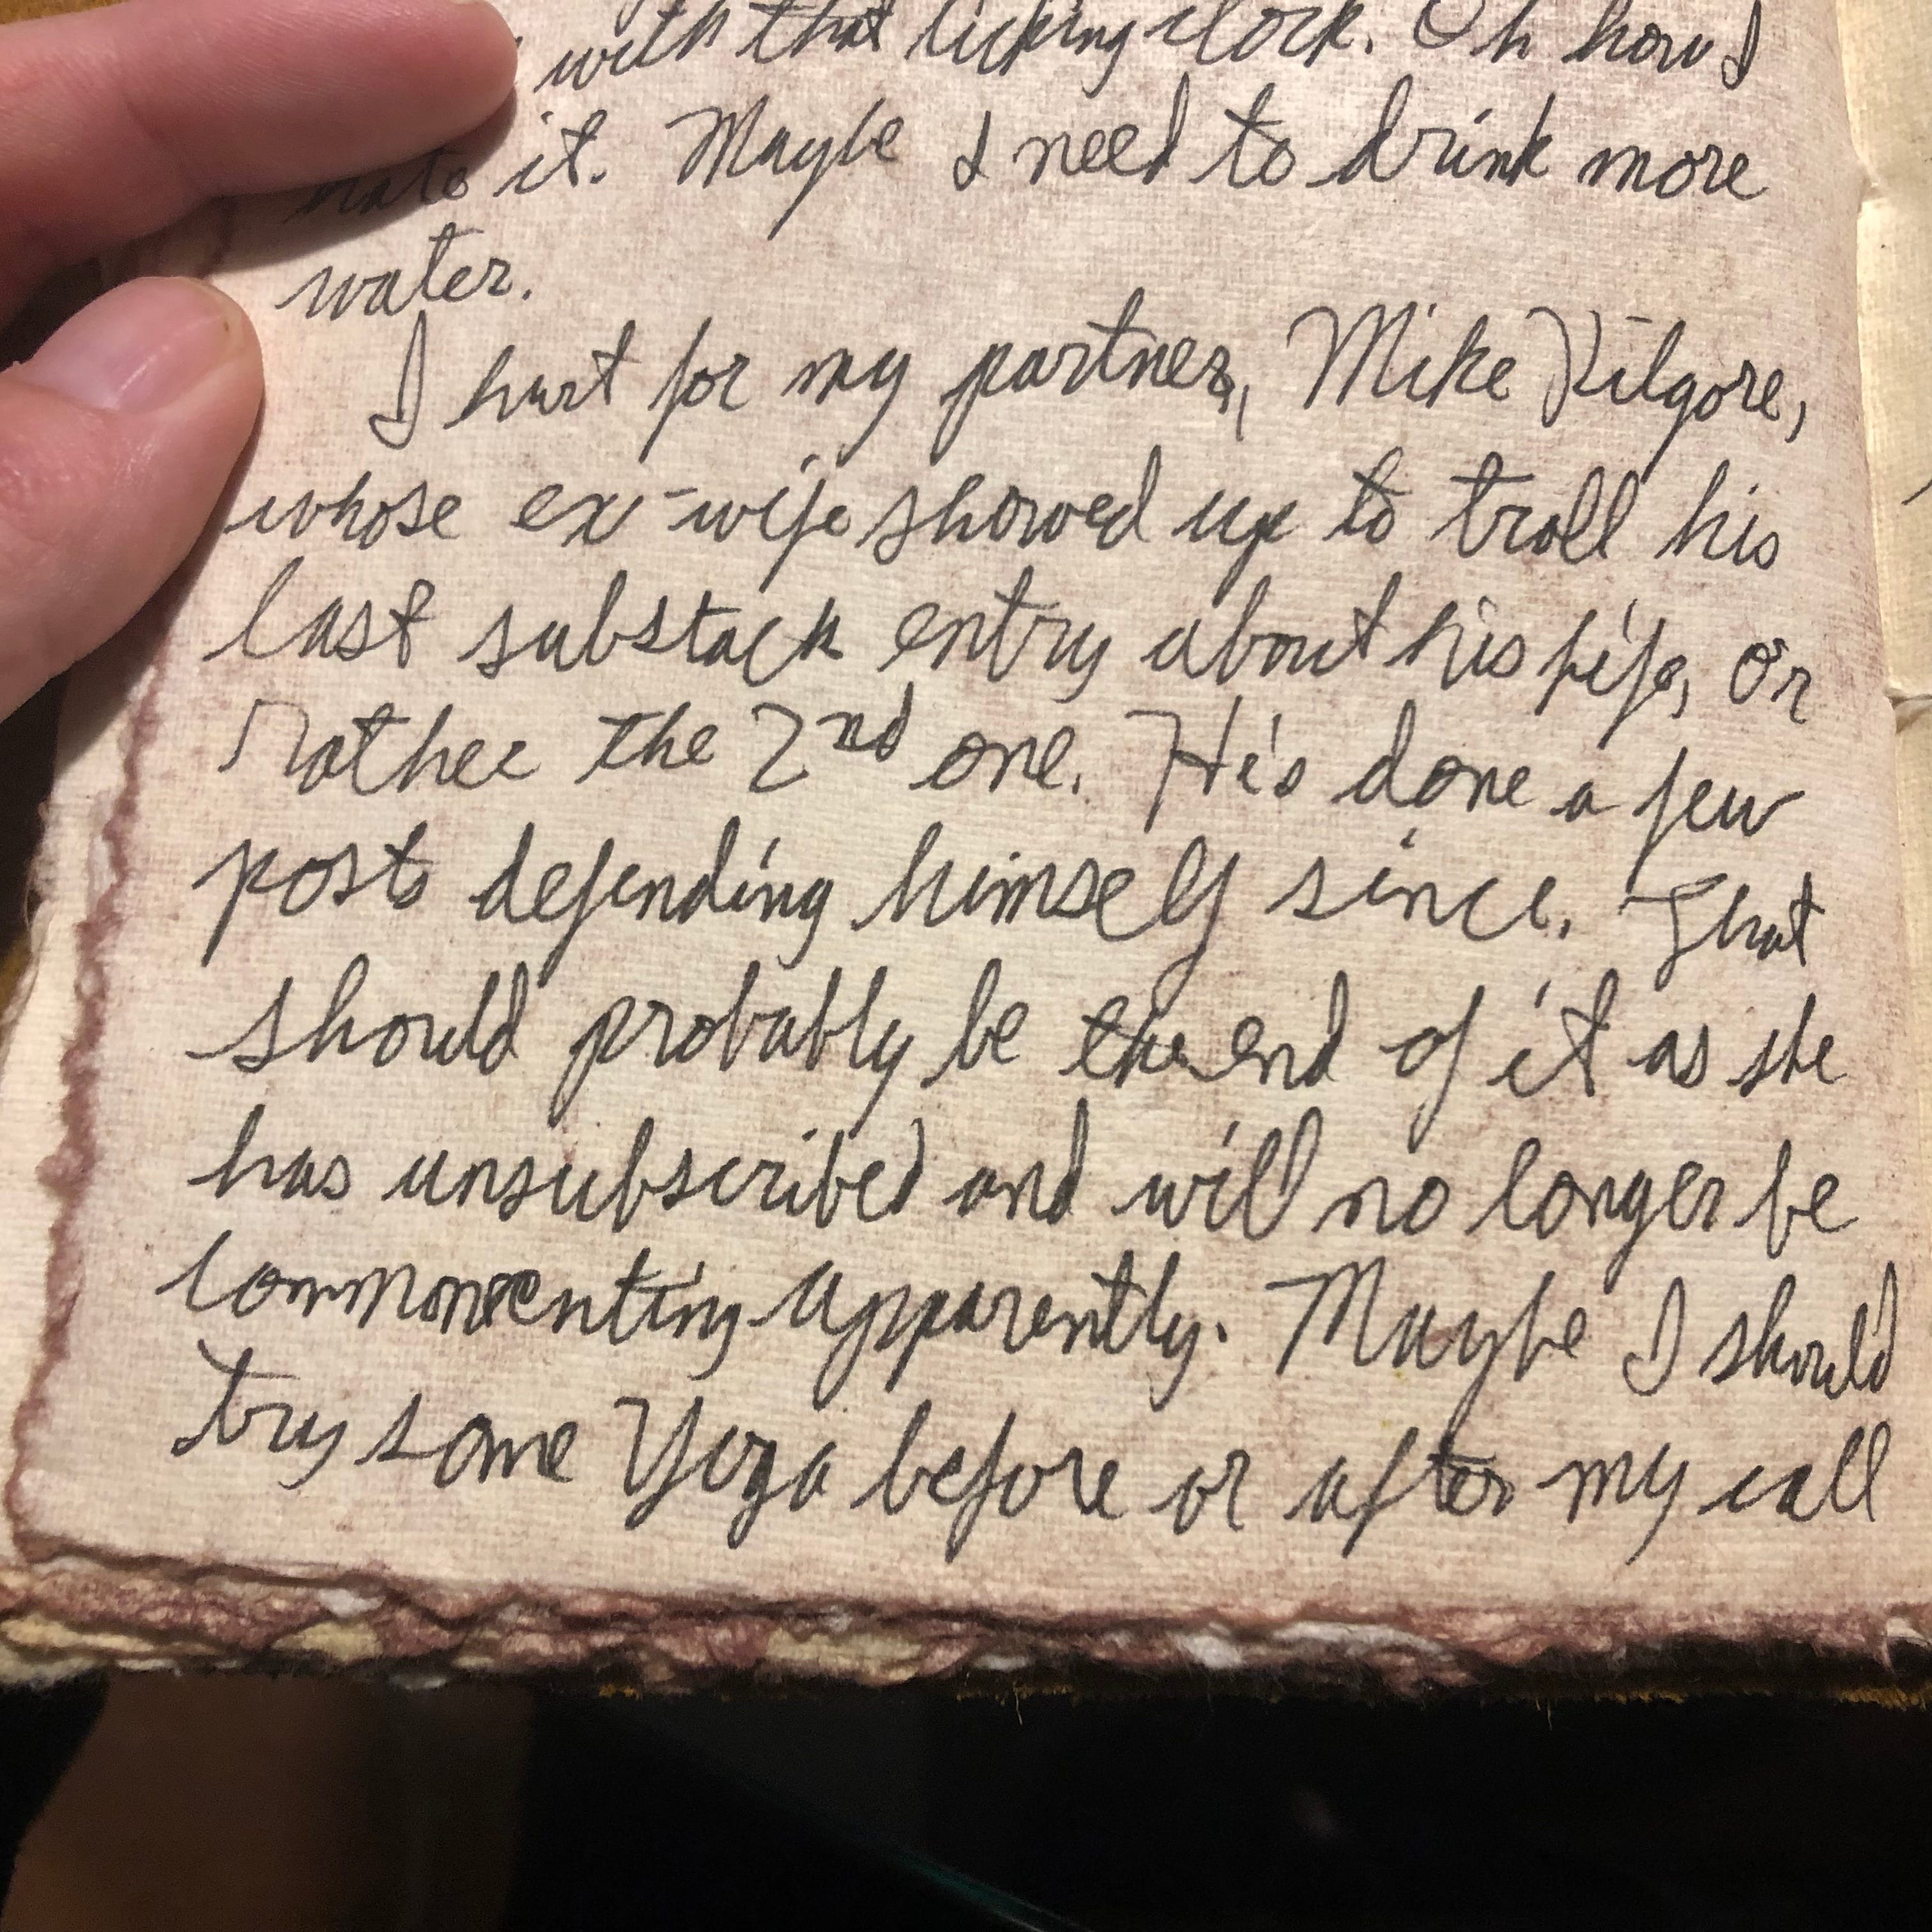 with that ticking clock. Oh how I
hate it. Maybe I need to drink more
water.
I hurt for my partner, Mike Kilgore,
whose ex-wife showed up to troll his
last substack entry about his life, or
rather the 2nd one. He's done a few
posts defending himself since. That
should probably be the end of it as she
has unsubscribed and will no longer be
commenting apparently. Maybe I should
try some Yoga before or after my call